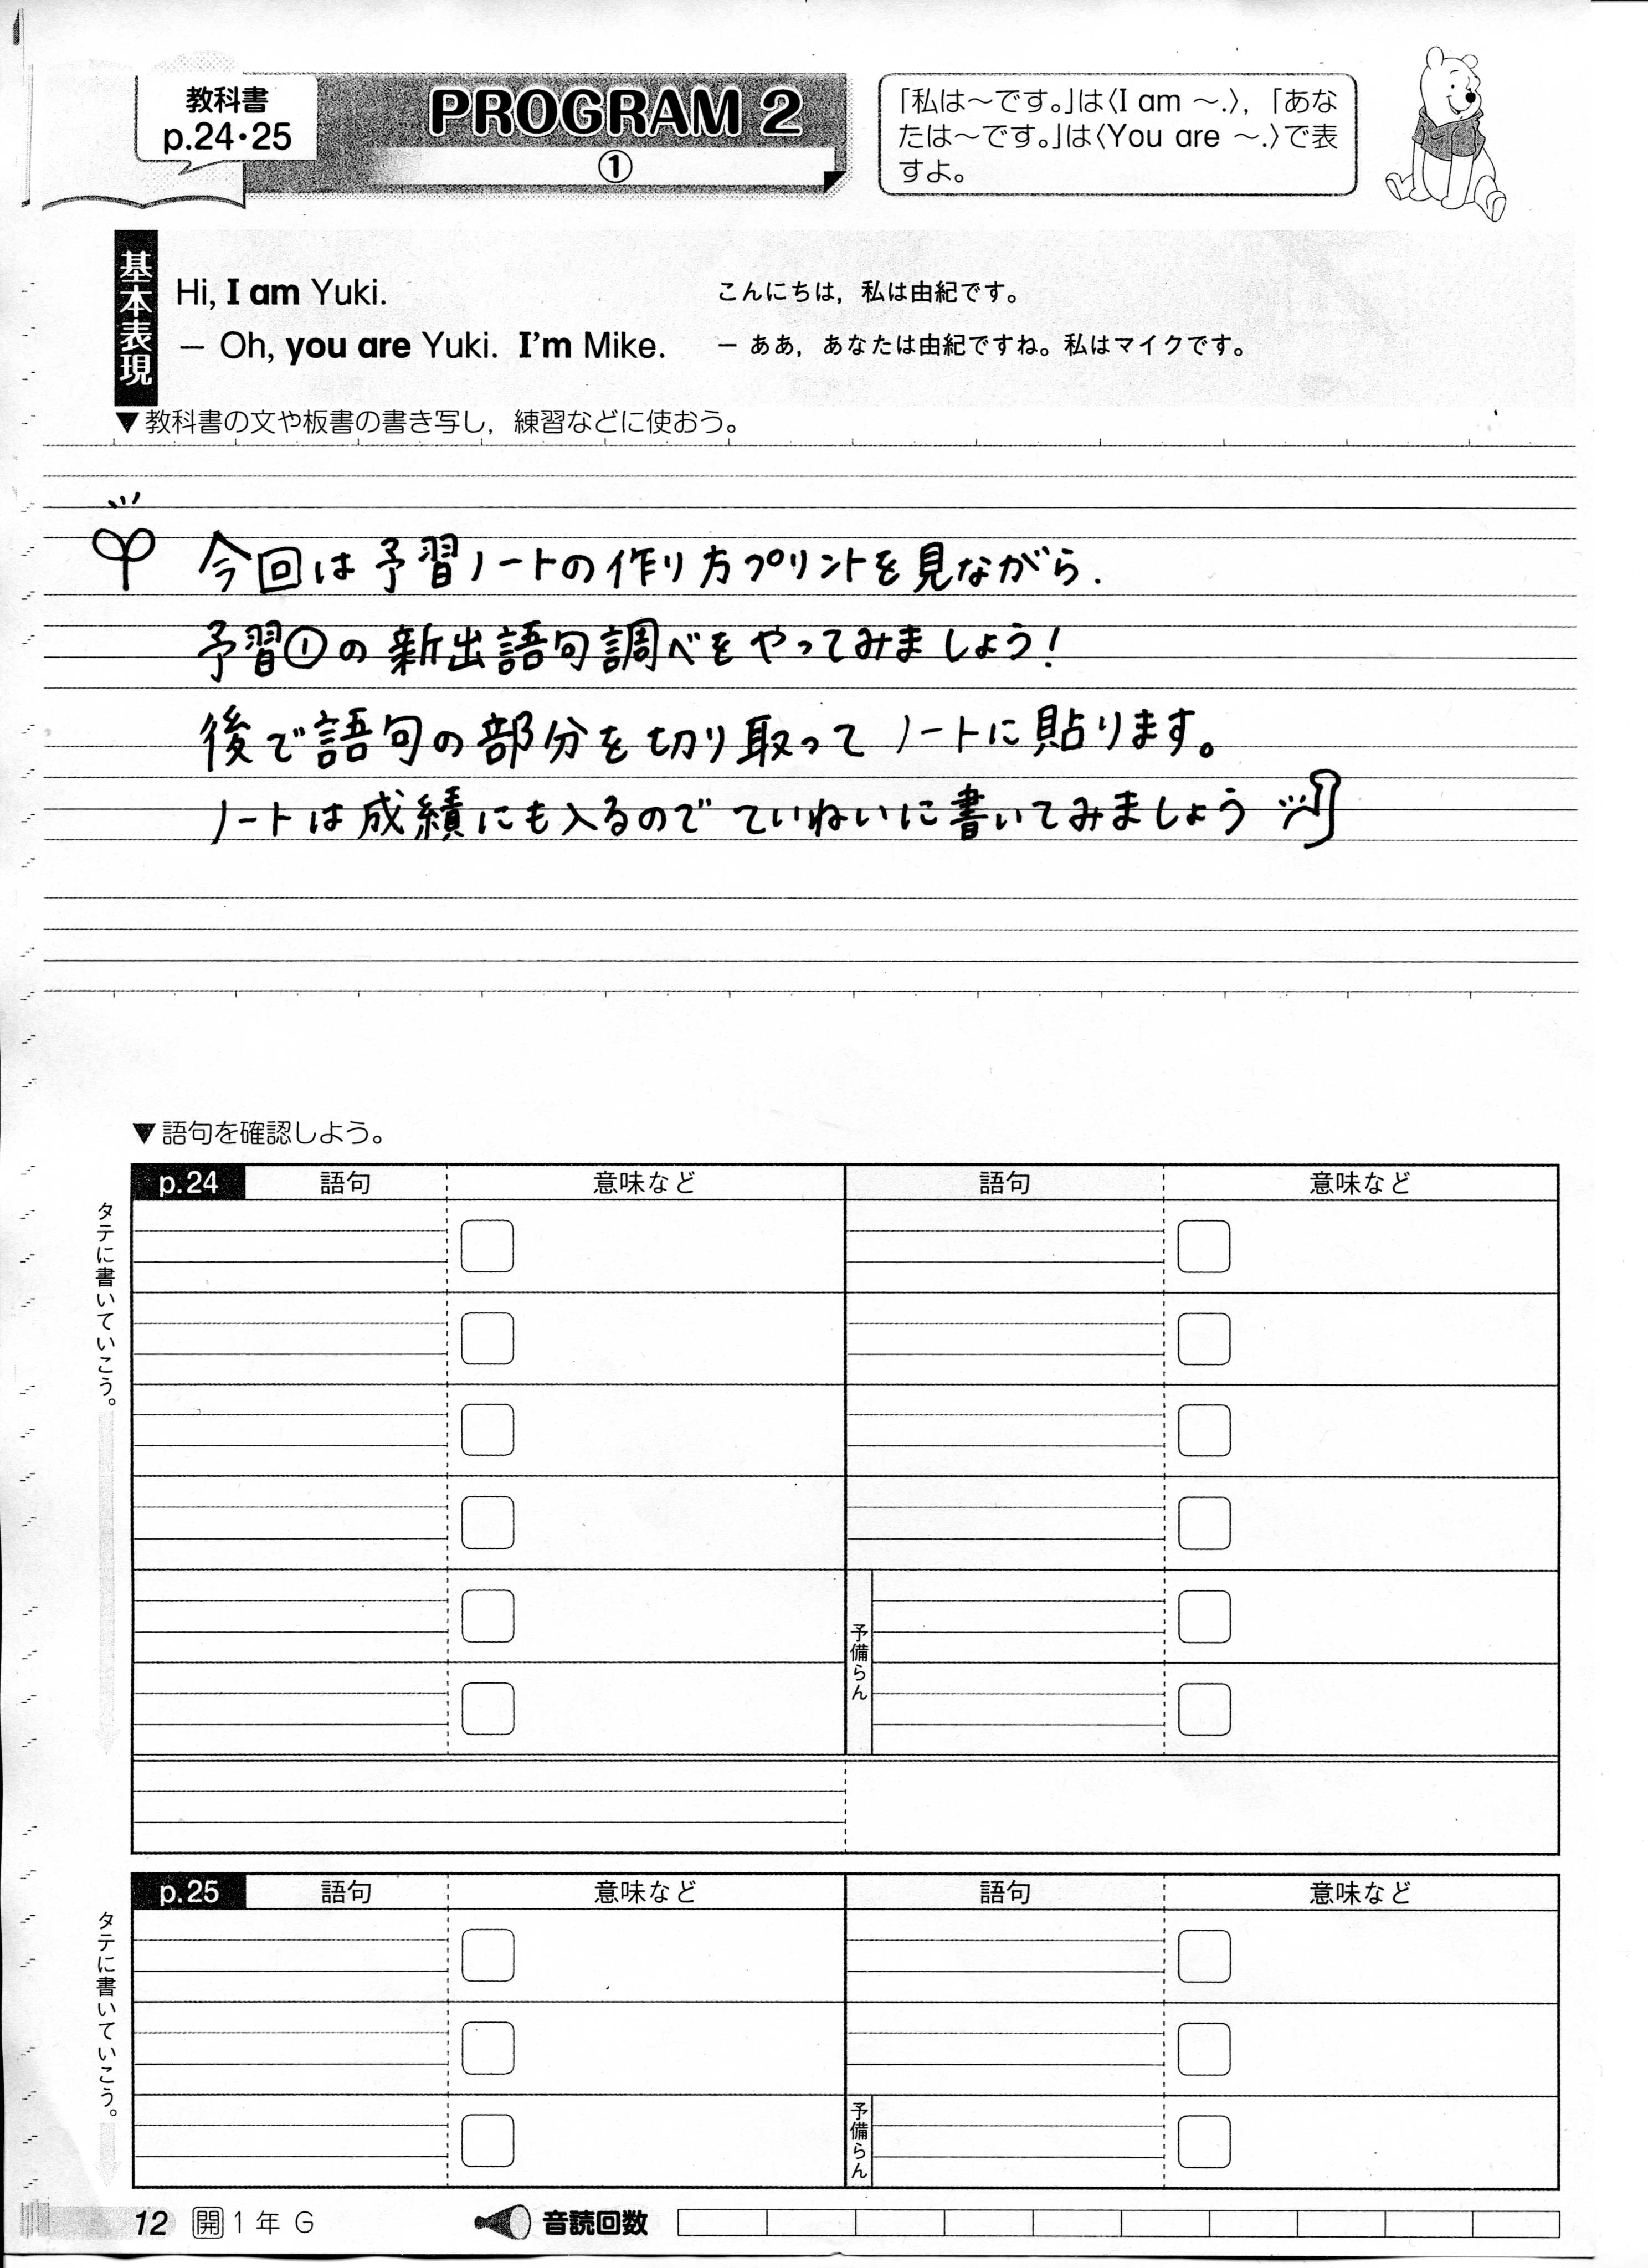 教科書
p.24・25
PROGRAM 2
①
「私は～です。」は〈I am ～.〉,「あな
たは～です。」は〈You are ～.〉で表
すよ。
基本表現
Hi, I am Yuki.
こんにちは，私は由紀です。
― Oh, you are Yuki. I'm Mike.
― ああ，あなたは由紀ですね。私はマイクです。
▼教科書の文や板書の書き写し，練習などに使おう。
今回は予習ノートの作り方プリントを見ながら.
予習①の新出語句調べをやってみましょう!
後で語句の部分を切り取ってノートに貼ります。
ノートは成績にも入るのでていねいに書いてみましょう
▼語句を確認しよう。
p.24 語句 意味など 語句 意味など
タテに書いていこう。
予備らん
p.25 語句 意味など 語句 意味など
タテに書いていこう。
予備らん
12 開1年 G
音読回数